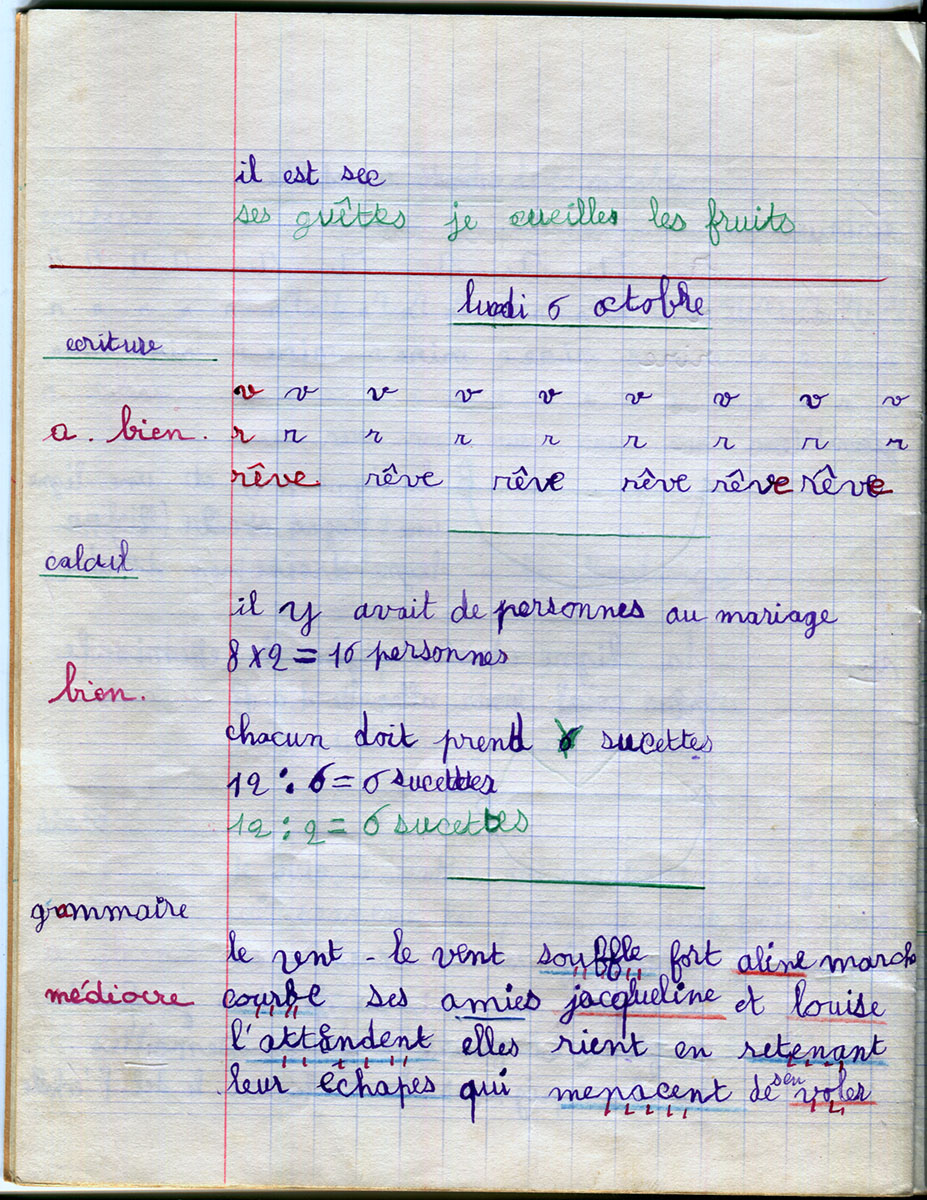 il est sec
ses guêttes je cueilles les fruits
lundi 6 octobre
ecriture
v v v v v v v v v
a. bien. r r r r r r r r r
rêve rêve rêve rêve rêve rêve
calcul
il y avait de personnes au mariage
8 x 2 = 16 personnes
bien.
chacun doit prend 6 sucettes
12 : 6 = 6 sucettes
12 : 2 = 6 sucettes
grammaire
le vent - le vent souffle fort aline marche
médiocre courbe ses amies jacqueline et louise
l'attendent elles rient en retenant
leur êchapes qui menacent de s'en voler